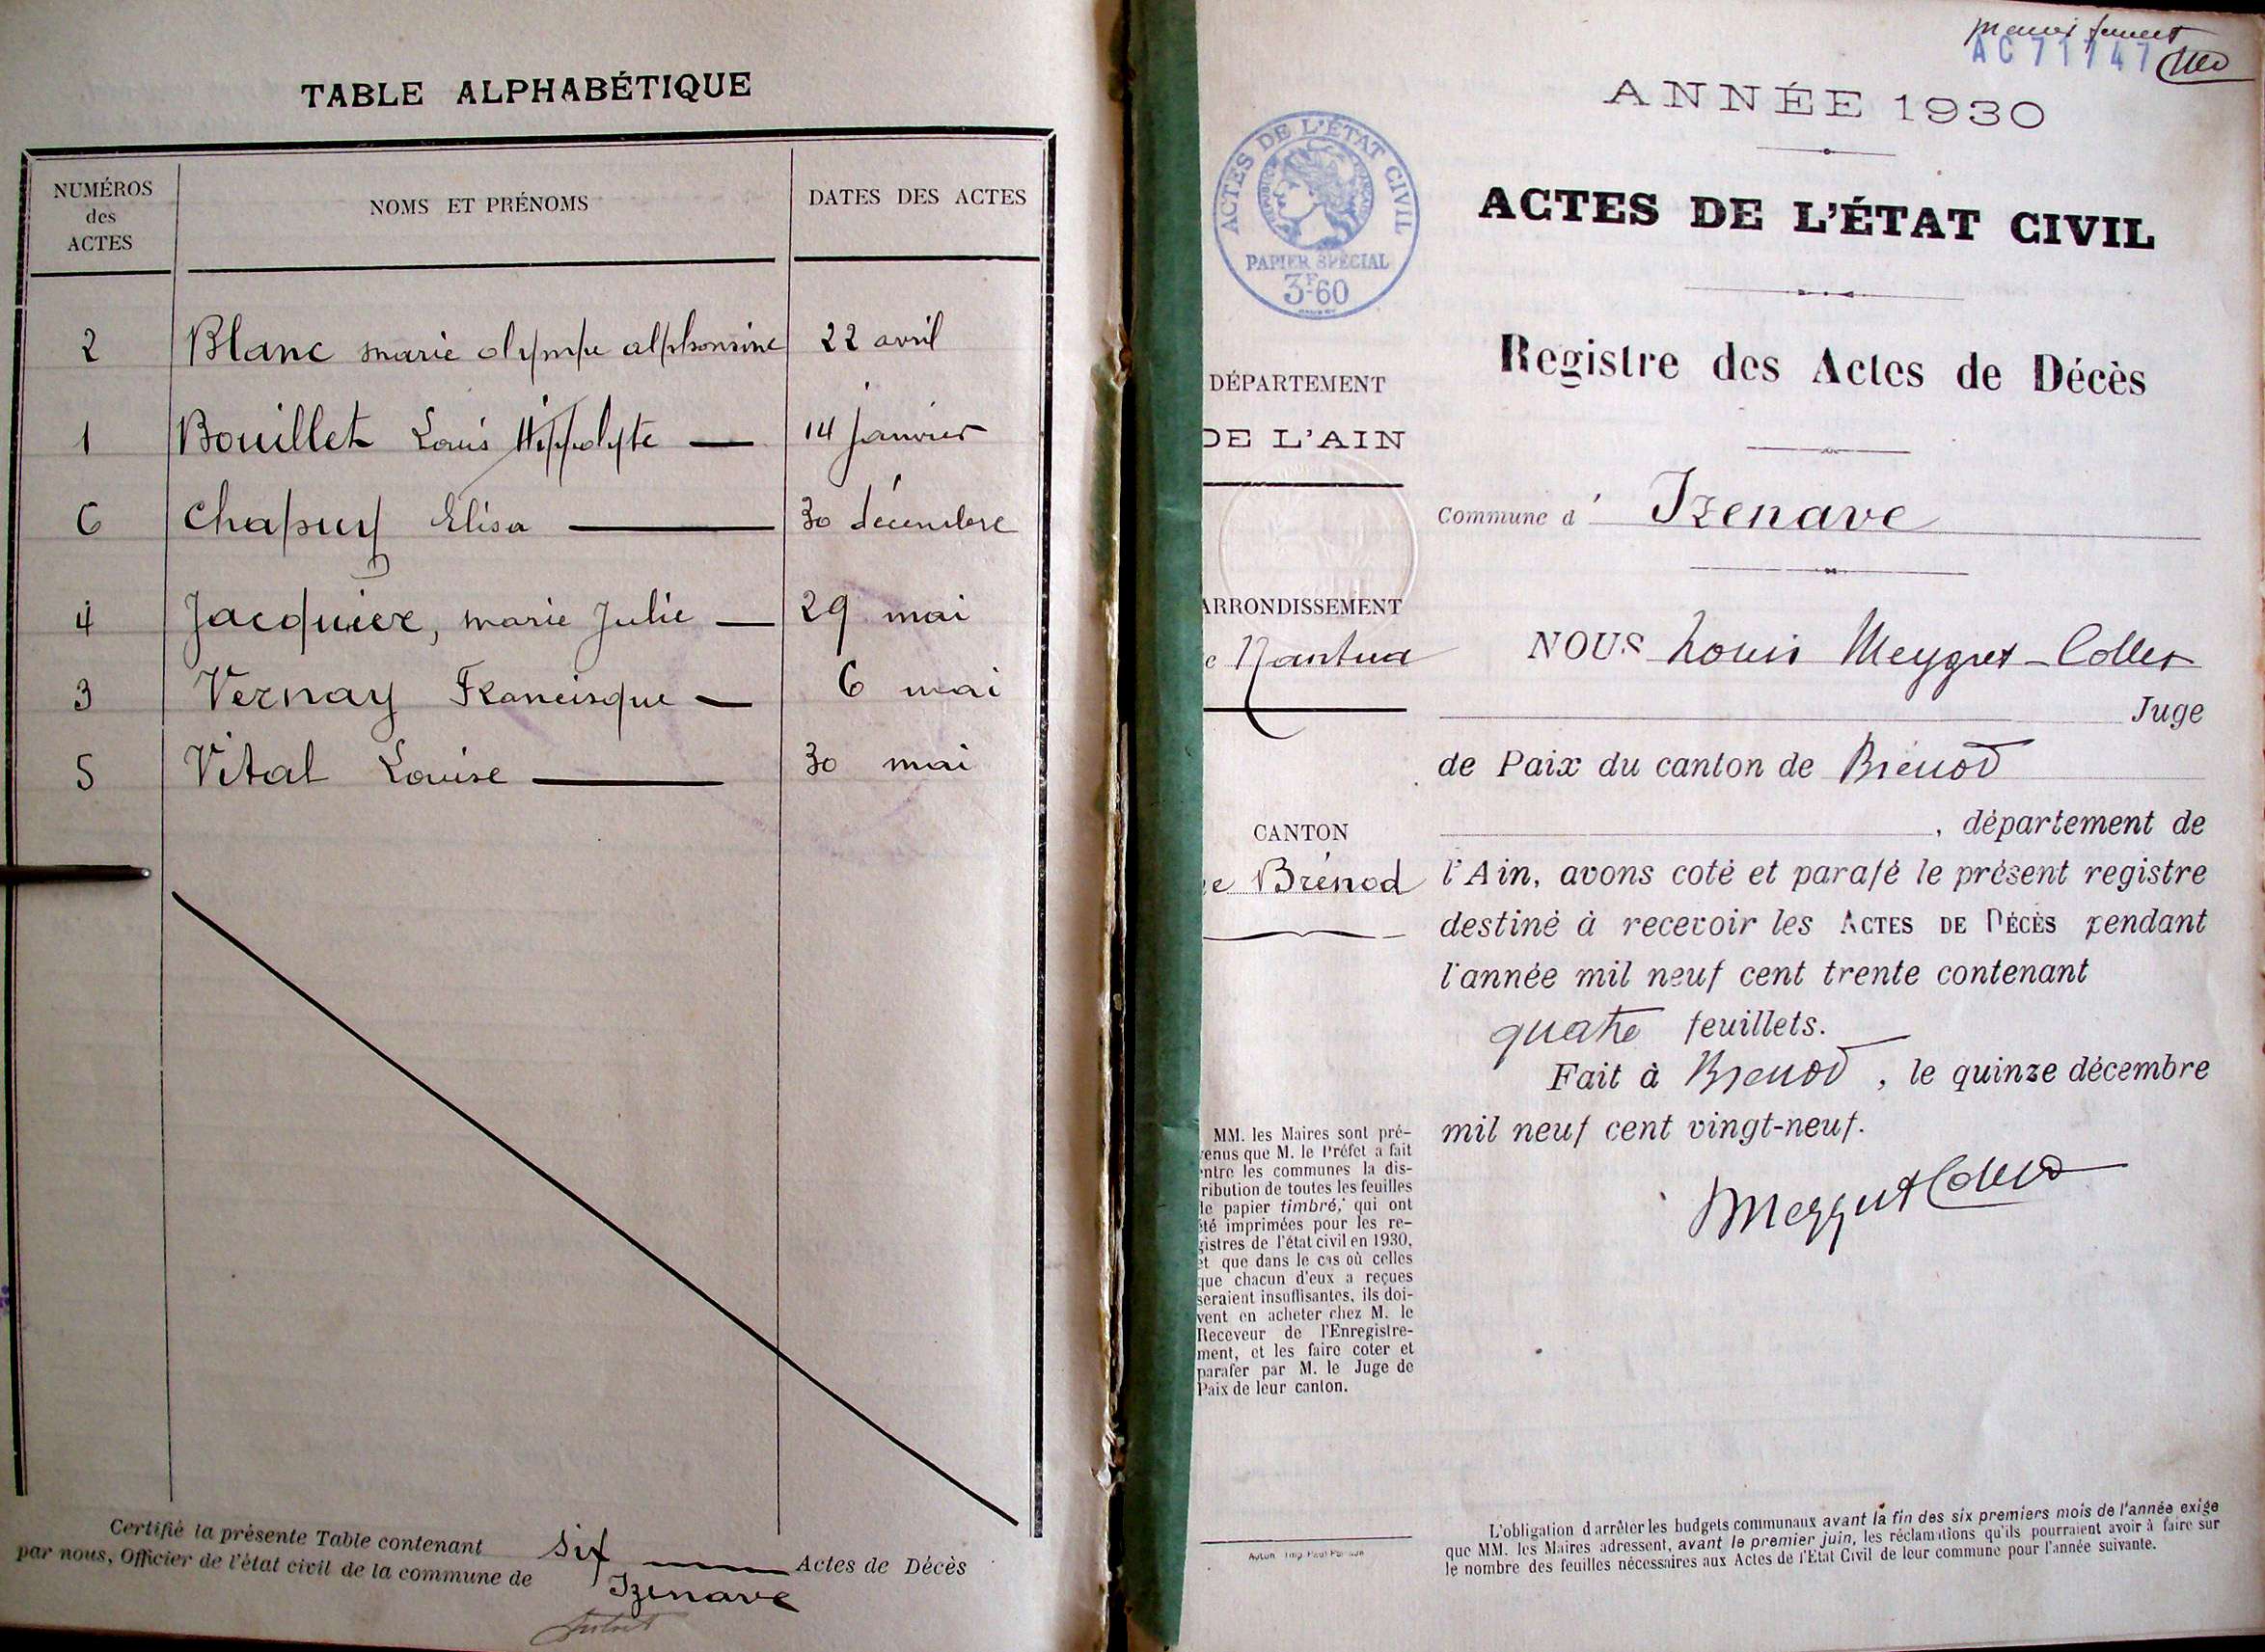 TABLE ALPHABÉTIQUE
NUMÉROS
des
ACTES
NOMS ET PRÉNOMS
DATES DES ACTES
2 Blanc marie olympe alphonsine 22 avril
1 Bouillet Louis Hippolyte — 14 janvier
6 Chapuy Elisa — 30 décembre
4 Jacquier, marie Julie — 29 mai
3 Vernay Francisque — 6 mai
5 Vital Louise — 30 mai
Certifié la présente Table contenant six — Actes de Décès
par nous, Officier de l'état civil de la commune de Izenave
AC 71747
ANNÉE 1930
ACTES DE L'ÉTAT CIVIL
PAPIER SPÉCIAL
3F60
ACTES DE L'ÉTAT CIVIL
Registre des Actes de Décès
DÉPARTEMENT
DE L'AIN
Commune d' Izenave
ARRONDISSEMENT
e Nantua
CANTON
e Brénod
NOUS Louis Meygret-Collet
Juge
de Paix du canton de Brénod
, département de
l'Ain, avons coté et parafé le présent registre
destiné à recevoir les ACTES DE DÉCÈS pendant
l'année mil neuf cent trente contenant
quatre feuillets.
Fait à Brénod, le quinze décembre
mil neuf cent vingt-neuf.
MM. les Maires sont pré-
venus que M. le Préfet a fait
entre les communes la dis-
tribution de toutes les feuilles
de papier timbré, qui ont
été imprimées pour les re-
gistres de l'état civil en 1930,
et que dans le cas où celles
que chacun d'eux a reçues
seraient insuffisantes, ils doi-
vent en acheter chez M. le
Receveur de l'Enregistre-
ment, et les faire coter et
parafer par M. le Juge de
Paix de leur canton.
L'obligation d'arrêter les budgets communaux avant la fin des six premiers mois de l'année exige
que MM. les Maires adressent, avant le premier juin, les réclamations qu'ils pourraient avoir à faire sur
le nombre des feuilles nécessaires aux Actes de l'État Civil de leur commune pour l'année suivante.